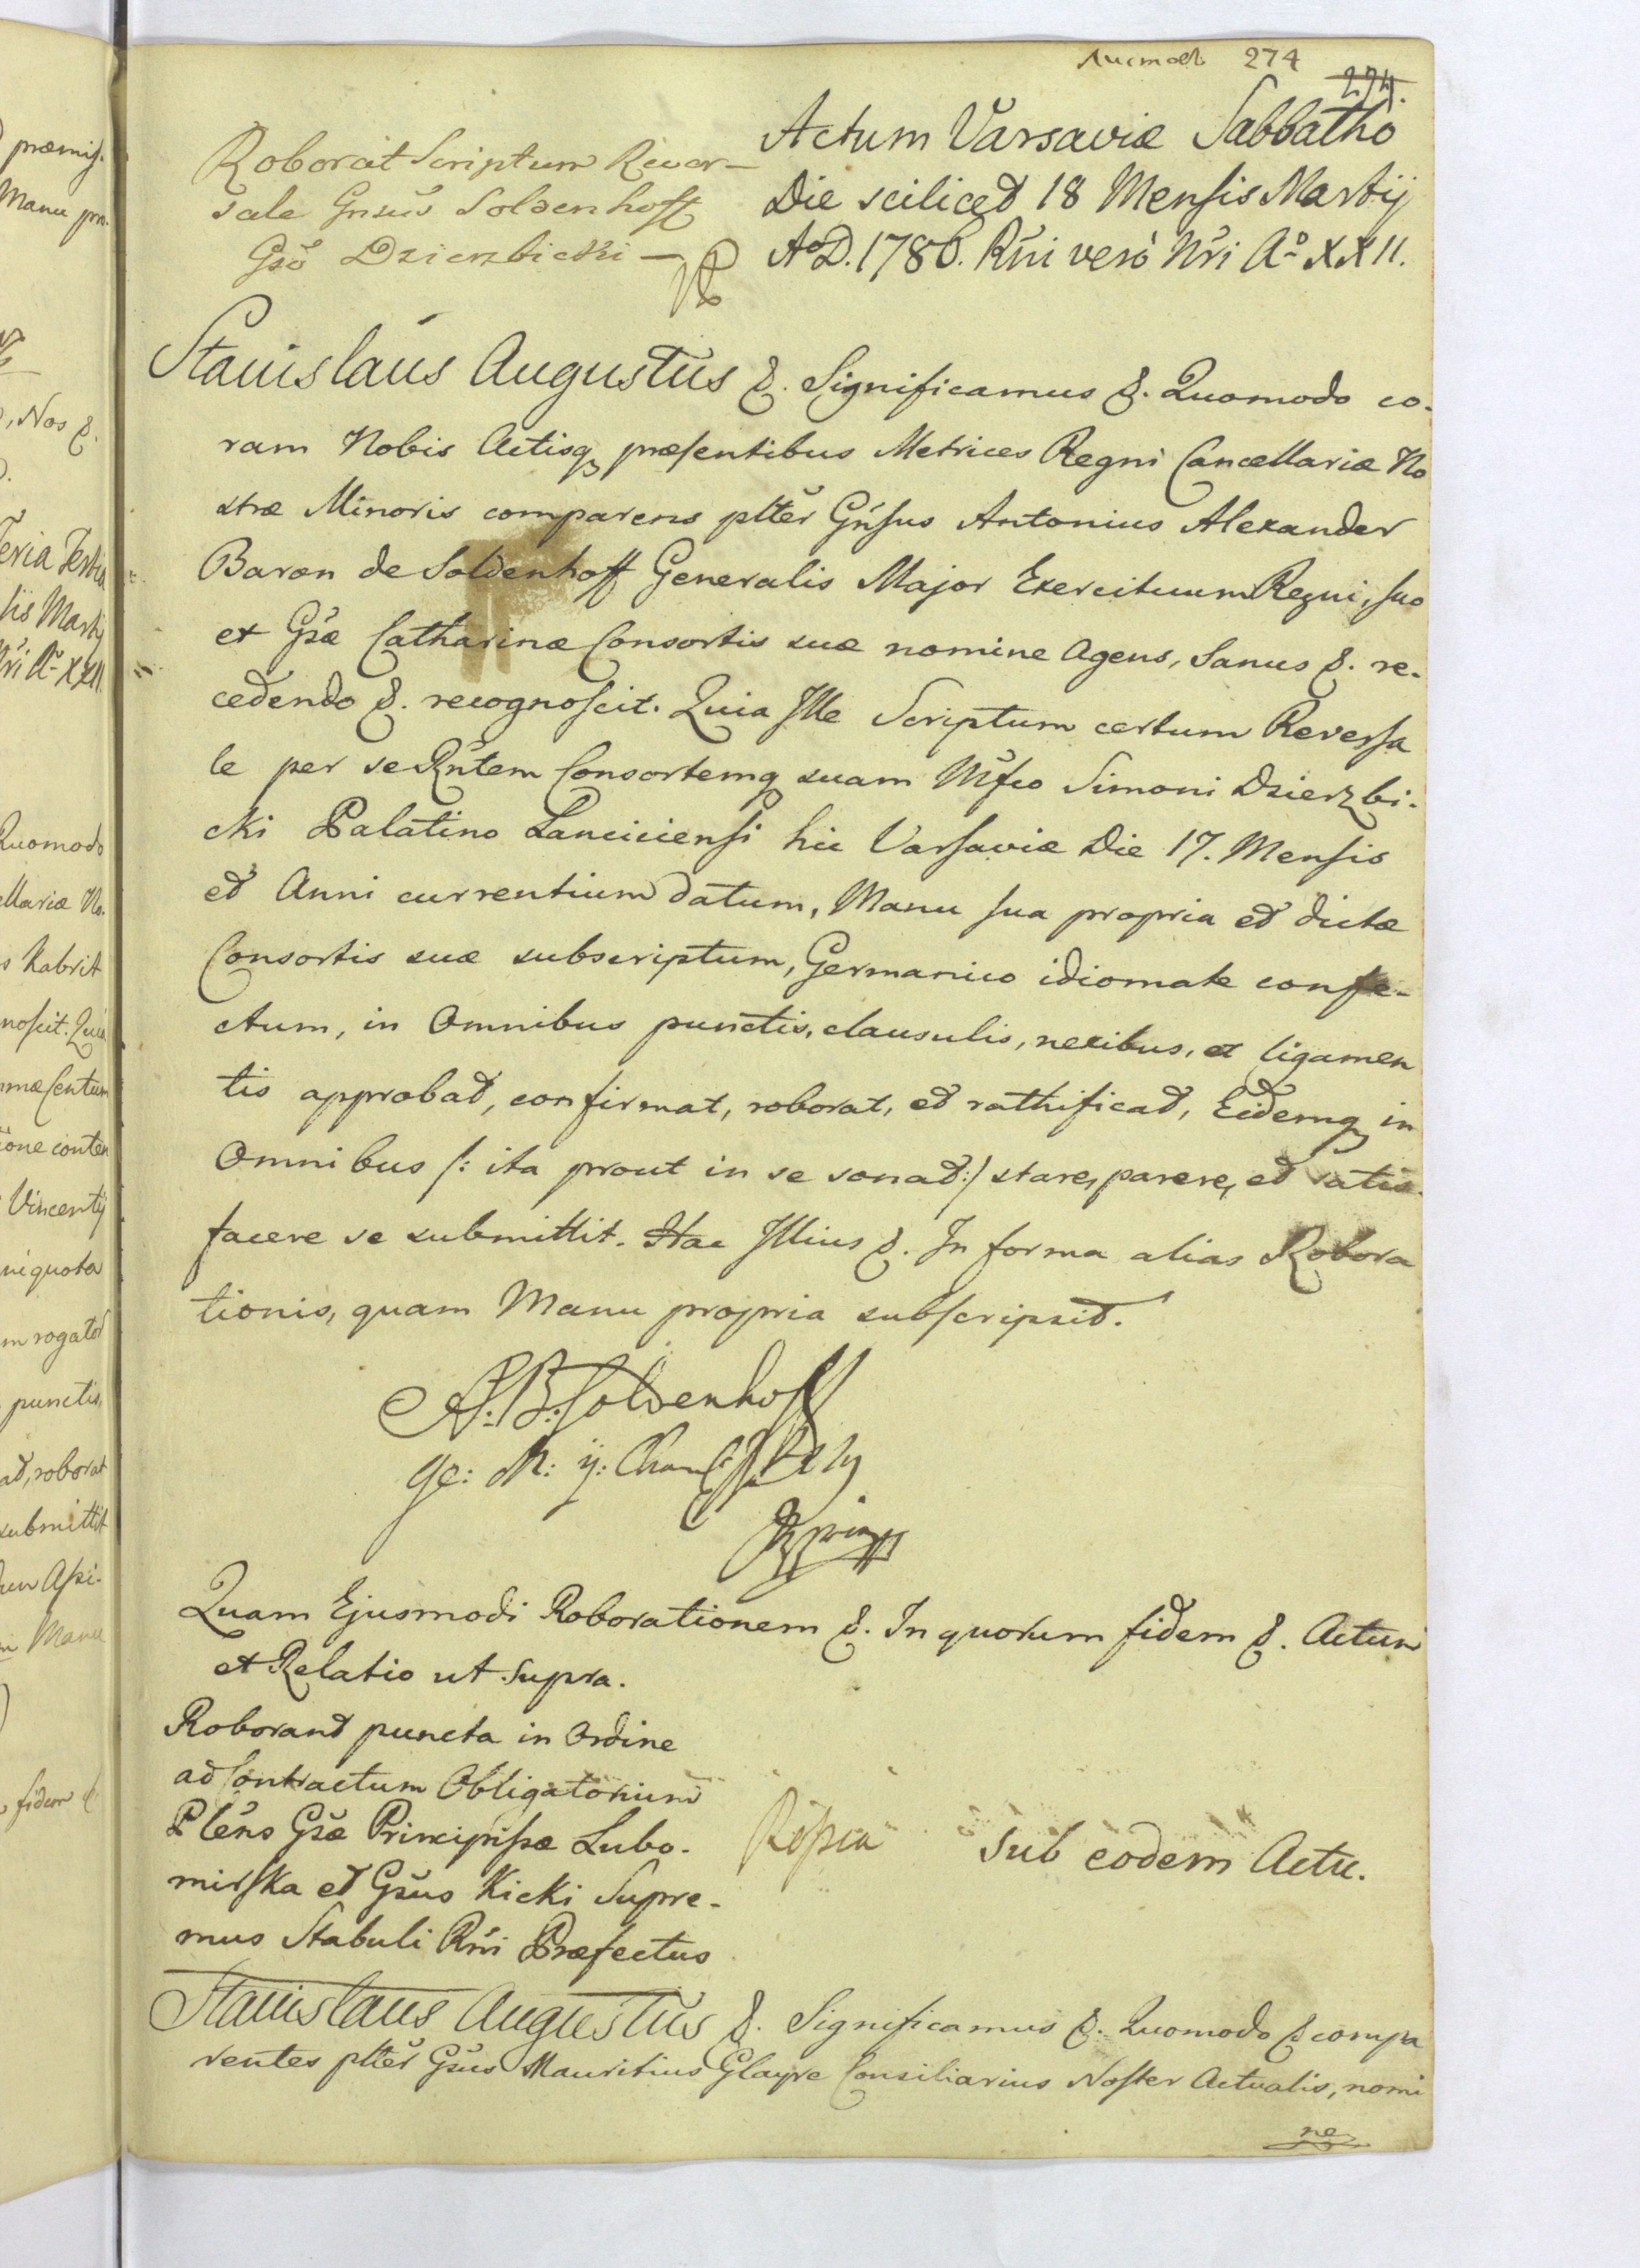 Листов 274
274.
Roborat Scriptum Rever-
sale Gnsus Soldenhoff
Gso Dzierzbicki —
Actum Varsaviæ Sabbatho
Die scilicet 18 Mensis Martij
Ao D. 1786. Rni vero Nri Ao XXII.
Stanislaus Augustus &. Significamus &. Quomodo co-
ram Nobis Actisq præsentibus Metrices Regni Cancellariæ No
stræ Minoris comparens pltter Gnsus Antonius Alexander
Baron de Soldenhoff Generalis Major Exercituum Regni, suo
et Gsæ Catharinæ Consortis suæ nomine Agens, Sanus &. re-
cedendo &. recognoscit. Quia Ille Scriptum certum Reversa
le per se Rntem Consortemq suam Mfco Simoni Dzierzbi-
cki Palatino Lanciciensi hic Varsaviæ Die 17. Mensis
et Anni currentium datum, Manu sua propria et dictæ
Consortis suæ subscriptum, Germanico idiomate confe-
ctum, in Omnibus punctis, clausulis, nexibus, et ligamen
tis approbat, confirmat, roborat, et rathificat, Eidemq in
Omnibus /: ita prout in se sonat :/ stare, parere, et satis-
facere se submittit. Hac Illius &. In forma alias Robora
tionis, quam Manu propria subscripsit.
A: B: Soldenhoff
Ge: M: y:
Quam Ejusmodi Roborationem &. In quorum fidem &. Actum
et Relatio ut Supra.
Roborant puncta in Ordine
ad Contractum Obligatorium
Plens Gsæ Principissæ Lubo-
mirska et Gsus Kicki Supre-
mus Stabuli Rni Præfectus
Sub eodem Actu.
Stanislaus Augustus &. Significamus &. Quomodo & compa
rentes pltter Gsus Mauritius Glayre Consiliarius Noster Actualis, nomi
ne